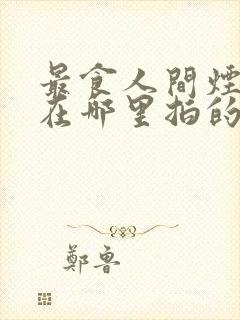 最食人間煙
在哪里拍的
鄭魯